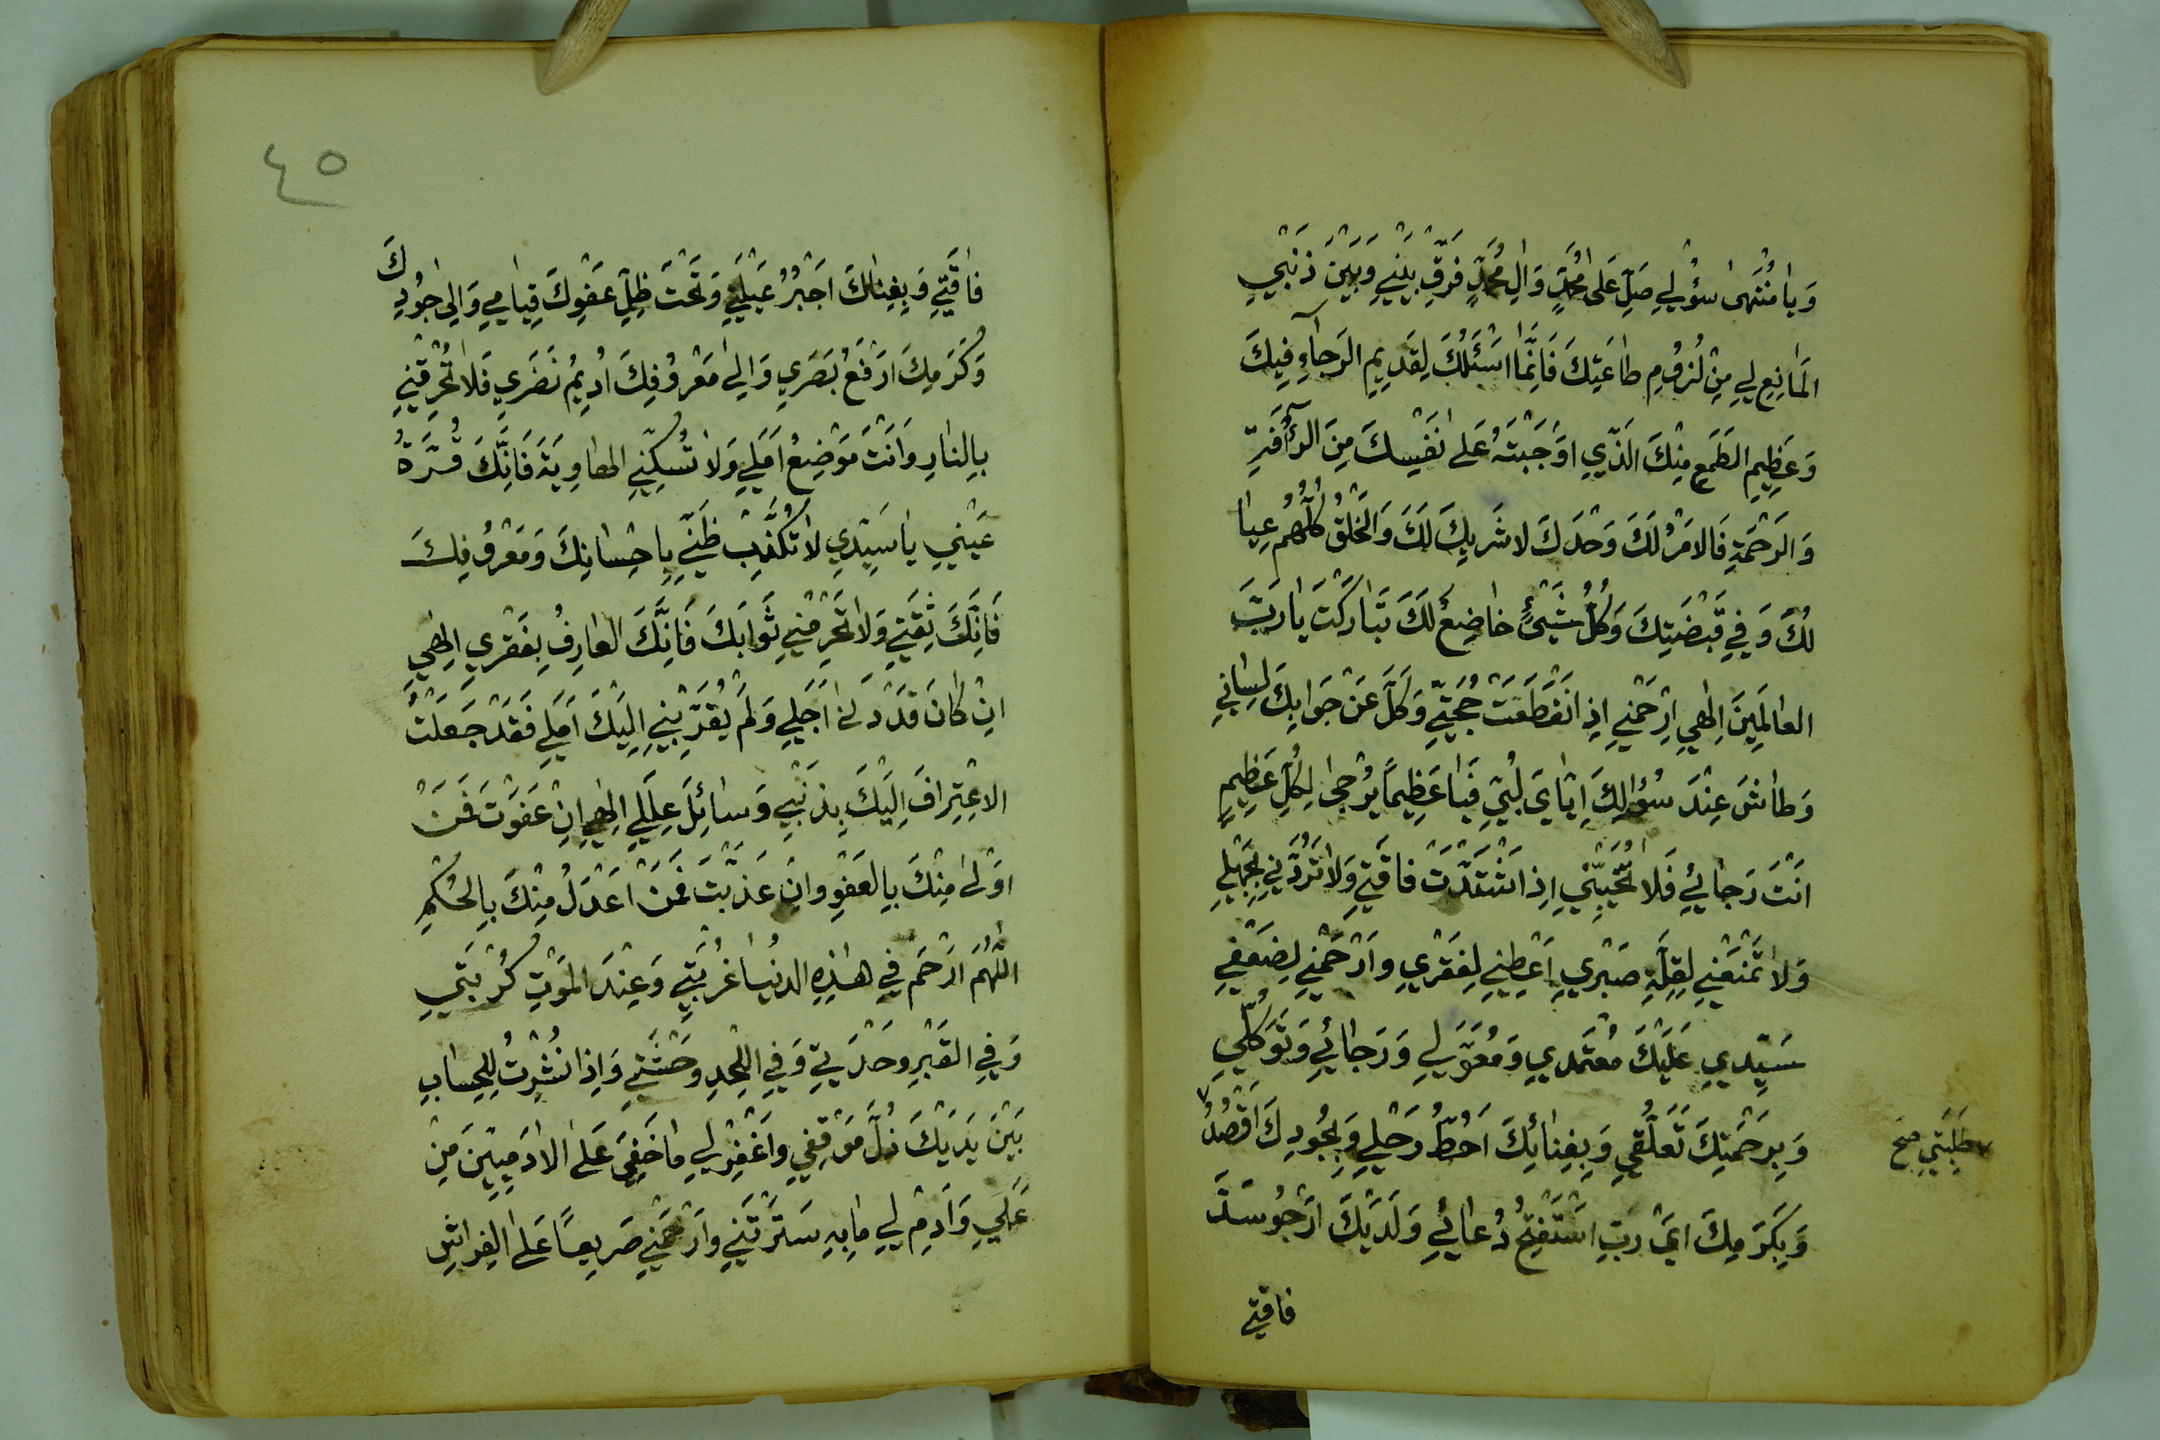 وَيا مُنْتَهىٰ سُؤْلِي صَلِّ عَلىٰ مُحَمَّدٍ وَالِ مُحَمَّدٍ فَرِّقْ بَيْنِي وَبَيْنَ ذَنْبِي
المَانِعِ لِي مِنْ لُزُومِ طاعَتِكَ فَاِنَّمَا اَسْئَلُكَ لِقَدِيمِ الرَجاءِ فِيكَ
وَعَظِيمِ الطَمَعِ مِنْكَ الَّذِي اَوْجَبْتَهُ عَلىٰ نَفْسِكَ مِنَ الرَّأْفَةِ
وَالرَحْمَةِ فَالاَمْرُ لَكَ وَحْدَكَ لا شَرِيكَ لَكَ وَالخَلْقُ كُلُّهُمْ عِيا
لُكَ وَفِي قَبْضَتِكَ وَكُلُّ شَيْئٍ خاضِعٌ لَكَ تَبَارَكْتَ يا رَبَّ
العالَمِينَ اِلٰهِي ارْحَمْنِي اِذا انْقَطَعَتْ حُجَّتِي وَكَلَّ عَنْ جَوابِكَ لِسانِي
وَطاشَ عِنْدَ سُؤالِكَ اِيَّايَ لُبِّي فَيا عَظِيماً يُرْجىٰ لِكُلِّ عَظِيمٍ
اَنْتَ رَجائِي فَلا تُخَيِّبْنِي اِذا اشْتَدَّتْ فاقَتِي وَلا تَرُدَّنِي لِجَهْلِي
وَلا تَمْنَعْنِي لِقِلَّةِ صَبْرِي اَعْطِنِي لِفَقْرِي وارْحَمْنِي لِضَعْفِي
سَيِّدِي عَلَيْكَ مُعْتَمَدِي وَمُعَوَّلِي وَرَجائِي وَتَوَكُّلِي
وَبِرَحْمَتِكَ تَعَلُّقِي وَبِفِنائِكَ اَحُطُّ رَحْلِي وَبِجُودِكَ اَقْصُدُ
طَلِبَتِي صح
وَبِكَرَمِكَ اَيْ رَبِّ اَسْتَفْتِحُ دُعائِي وَلَدَيْكَ اَرْجُو سَدَّ
فاقتي
٤٥
فاقَتِي وَبِغِناكَ اَجْبُرُ عَيْلَتِي وَتَحْتَ ظِلِّ عَفْوِكَ قِيامِي وَاِلىٰ جُودِكَ
وَكَرَمِكَ اَرْفَعُ بَصَرِي وَاِلىٰ مَعْرُوفِكَ اُدِيمُ نَضَرِي فَلا تُحْرِقْنِي
بِالنارِ وَاَنْتَ مَوْضِعُ اَمَلِي وَلا تُسْكِنِّي الهاوِيَةَ فَاِنَّكَ قُرَّةُ
عَيْنِي يا سَيِّدِي لا تُكَذِّبْ ظَنِّي بِاِحْسانِكَ وَمَعْرُوفِكَ
فَاِنَّكَ ثِقَتِي وَلا تَحْرِمْنِي ثَوابَكَ فَاِنَّكَ العارِفُ بِفَقْرِي اِلٰهِي
اِنْ كانَ قَدْ دَنىٰ اَجَلِي وَلَمْ يُقَرِّبْنِي اِلَيْكَ اَمَلِي فَقَدْ جَعَلْتُ
الاِعْتِرافَ اِلَيْكَ بِذَنْبِي وَسائِلَ عِلَلِي اِلٰهِي اِنْ عَفَوْتَ فَمَنْ
اَوْلىٰ مِنْكَ بِالعَفْوِ وانْ عَذَّبْتَ فَمَنْ اَعْدَلُ مِنْكَ بِالحُكْمِ
اللّٰهُمَّ ارْحَمْ فِي هٰذِهِ الدنْيا غُرْبَتِي وَعِنْدَ المَوْتِ كُرْبَتِي
وَفِي القَبْرِ وحْدَتِي وَفِي اللحْدِ وحْشَتِي وَاِذا نُشِرْتُ لِلْحِسابِ
بَيْنَ يَدَيْكَ ذُلَّ مَوْقِفِي واغْفِرْ لِي ما خَفِيَ عَلىٰ الاٰدَمِيِّينَ مِنْ
عَمَلِي وَاَدِمْ لِي ما بِهِ سَتَرْتَنِي وارْحَمْنِي صَرِيعاً عَلىٰ الفِراشِ